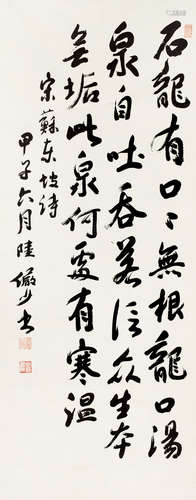 石龍有口〻無根龍口湯
泉自吐吞若信众生本
無垢此泉何處有寒温
宋蘇東坡詩
甲子六月陸儼少書